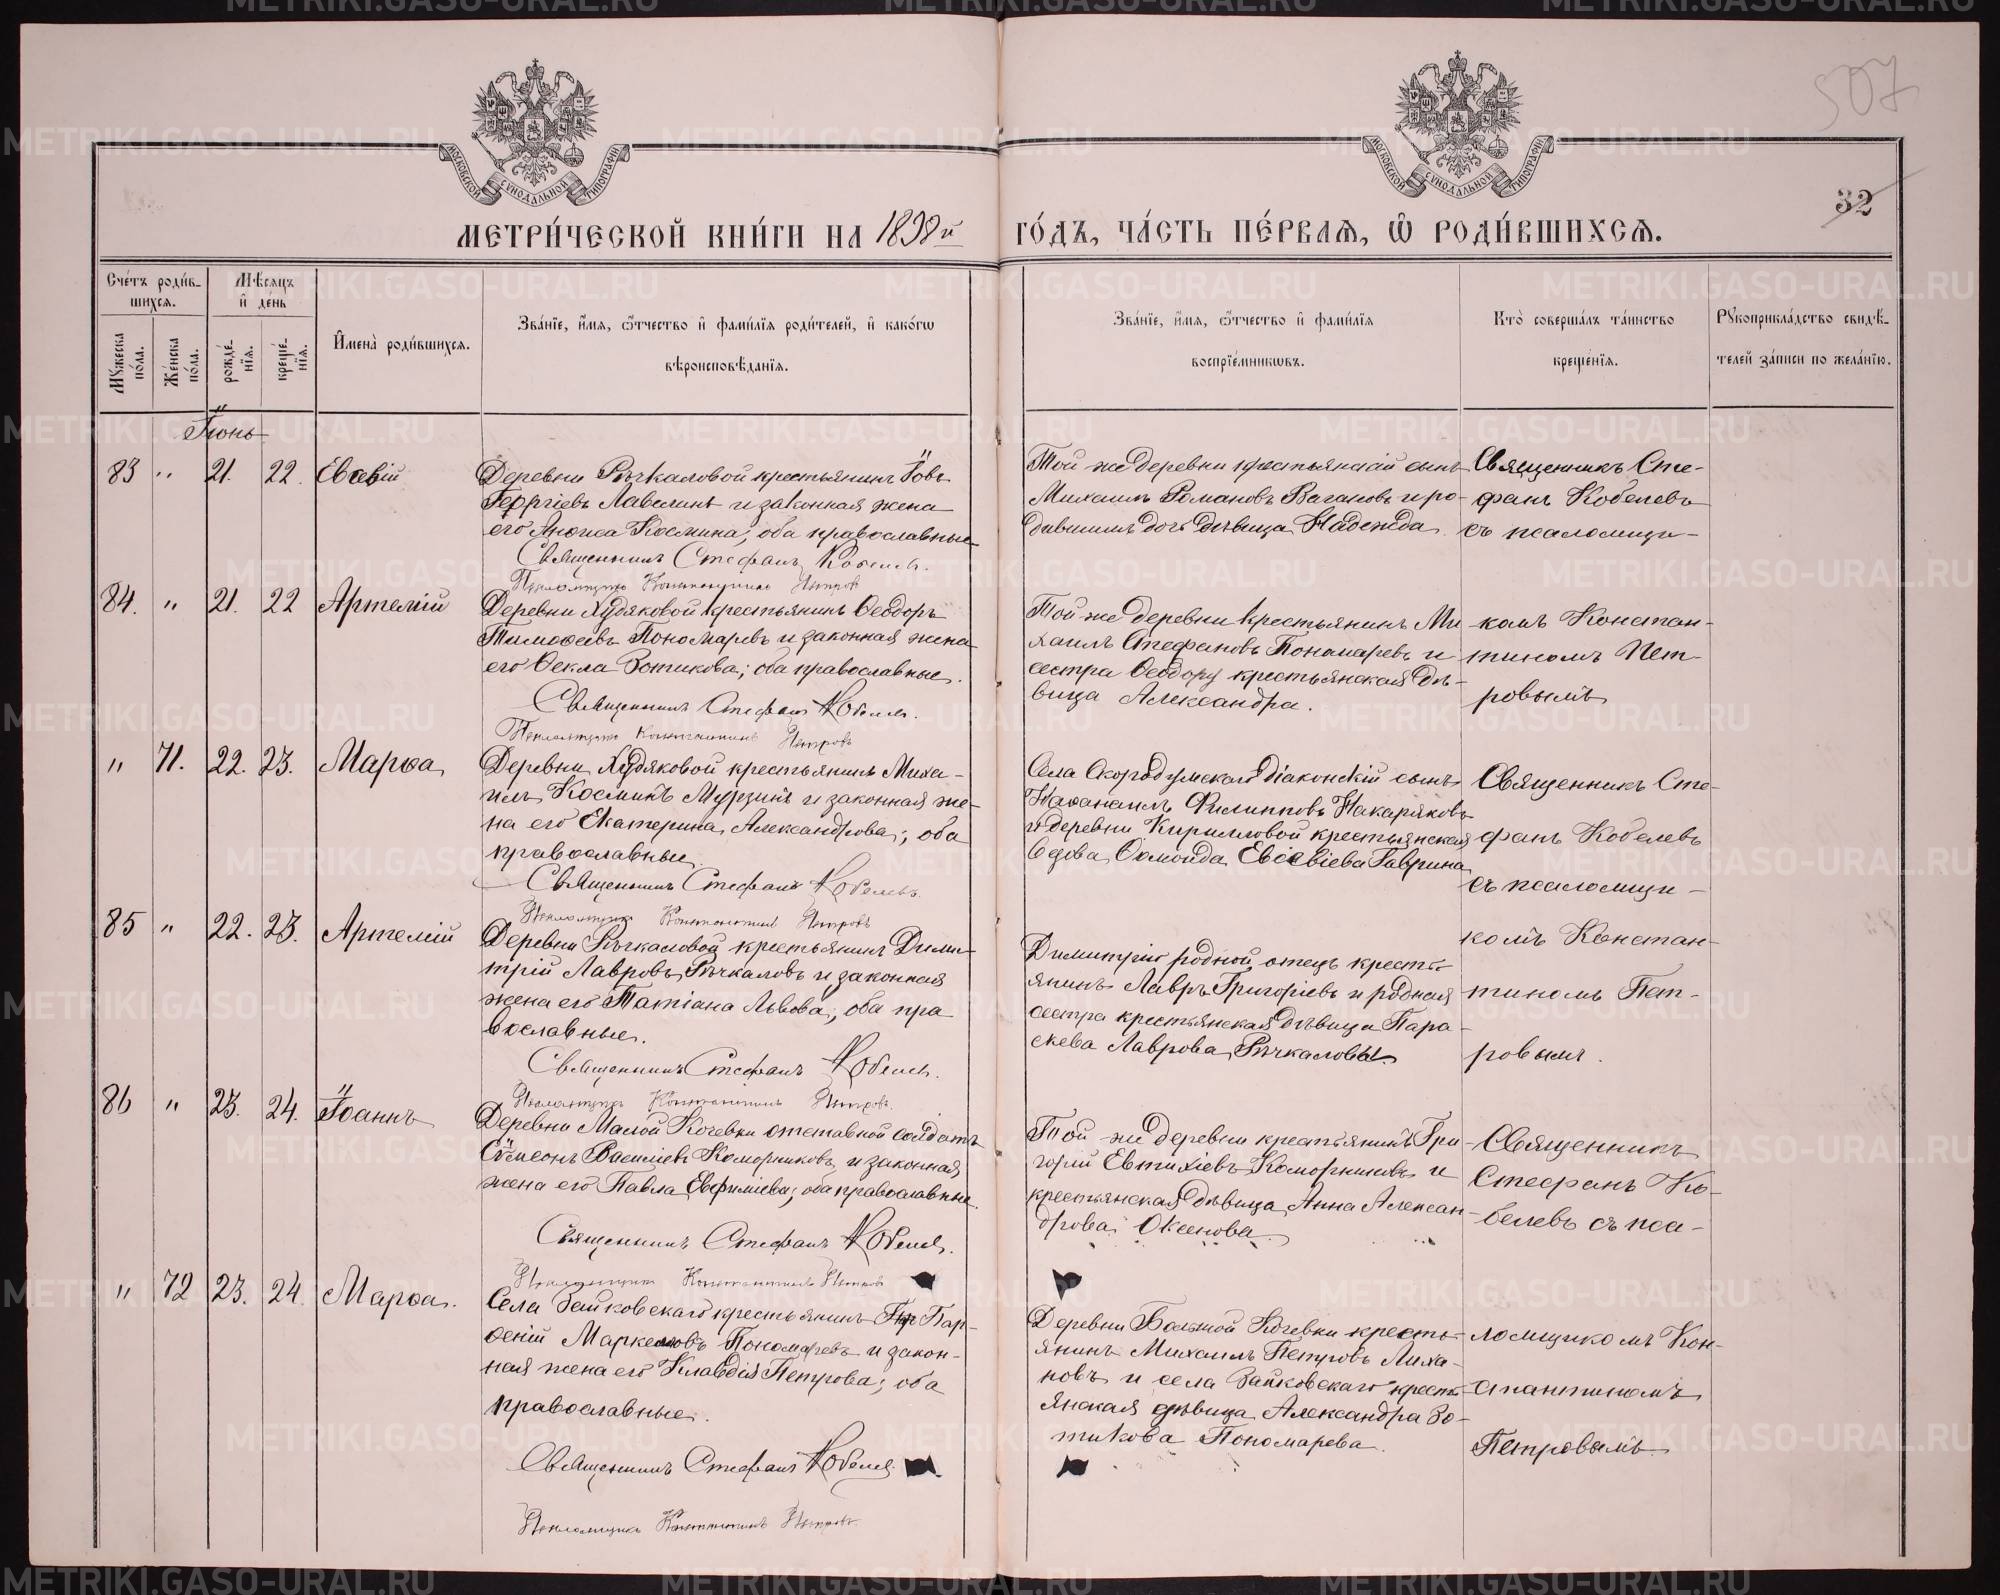 507
32
МОСКОВСКОЙ СѴНОДАЛЬНОЙ ТИПОГРАФІИ
МОСКОВСКОЙ СѴНОДАЛЬНОЙ ТИПОГРАФІИ
МЕТРИ́ЧЕСКОЙ КНИ́ГИ НА 1898й ГО́ДЪ, ЧА́СТЬ ПЕ́РВАЯ, Ѡ РОДИ́ВШИХСЯ.
Сче́тъ роди́в-
шихся.
Мꙋ́жеска по́ла.
Же́нска по́ла.
Мѣ́сяцъ и де́нь
рожде́нїя.
креще́нїя.
И҆мена̀ роди́вшихся.
Зва́нїе, и҆́мя, ѻ҆́тчество и҆ фами́лїя роди́телей, и҆ како́гѡ
вѣроисповѣ́данїя.
Зва́нїе, и҆́мя, ѻ҆́тчество и҆ фами́лїя
воспрїе́мникѡвъ.
Кто̀ соверша́лъ та́инство
креще́нїя.
Рꙋкоприкла́дство свидѣ́-
телей за́писи по жела́нїю.
Іюнь
83 " 21. 22. Евсевій
Деревни Рѣчкаловой крестьянинъ Іовъ
Георгіевъ Лавелинъ и законная жена
его Анфиса Космина; оба православные
Священникъ Стефанъ Кобелевъ.
Псаломщикъ Константинъ Петровъ
Той же деревни крестьянскій сынъ
Михаилъ Романовъ Вагановъ и ро-
дившимъ дочь дѣвица Надежда.
Священникъ Сте-
фанъ Кобелевъ
съ псаломщи-
84. " 21. 22 Артемій
Деревни Худяковой крестьянинъ Ѳеодоръ
Тимоѳеевъ Пономаревъ и законная жена
его Ѳекла Зотикова; оба православные.
Священникъ Стефанъ Кобелевъ.
Псаломщикъ Константинъ Петровъ
Той же деревни крестьянинъ Ми-
хаилъ Стефановъ Пономаревъ и
сестра Ѳеодору крестьянская дѣ-
вица Александра.
комъ Констан-
тиномъ Пет-
ровымъ
" 71. 22. 23. Марѳа
Деревни Худяковой крестьянинъ Миха-
илъ Косминъ Мурзинъ и законная же-
на его Екатерина Александрова; оба
православные.
Священникъ Стефанъ Кобелевъ.
Псаломщикъ Константинъ Петровъ
Села Скородумскаго діаконскій сынъ
Наѳанаилъ Филипповъ Накаряковъ
и деревни Кирилловой крестьянская
вдова Соломонида Евсевіева Гаврина
Священникъ Сте-
фанъ Кобелевъ
съ псаломщи-
85 " 22. 23. Артемій
Деревни Рѣчкаловой крестьянинъ Дими-
трій Лавровъ Рѣчкаловъ и законная
жена его Татіана Львова; оба пра-
вославные.
Священникъ Стефанъ Кобелевъ.
Псаломщикъ Константинъ Петровъ.
Димитрію родной отецъ кресть-
янинъ Лавръ Григорьевъ и родная
сестра крестьянская дѣвица Пара-
скева Лаврова Рѣчкаловы.
комъ Констан-
тиномъ Пет-
ровымъ.
86 " 23. 24. Іоаннъ
Деревни Малой Кочевки отставной солдатъ
Сѵмеонъ Васильевъ Коморниковъ и законная
жена его Павла Евфиміева; оба православные.
Священникъ Стефанъ Кобелевъ.
Псаломщикъ Константинъ Петровъ
Той же деревни крестьянинъ Гри-
горій Евтихіевъ Коморниковъ и
крестьянская дѣвица Анна Алексан-
дрова Оксенова.
Священникъ
Стефанъ Ко-
белевъ съ пса-
" 72 23. 24. Марѳа.
Села Зайковскаго крестьянинъ Пар-
ѳеній Маркеловъ Пономаревъ и закон-
ная жена его Клавдія Петрова; оба
православные.
Священникъ Стефанъ Кобелевъ.
Псаломщикъ Константинъ Петровъ.
Деревни Большой Кочевки кресть-
янинъ Михаилъ Петровъ Лиха-
новъ и села Зайковскаго кресть-
янская дѣвица Александра Зо-
тикова Пономарева.
ломщикомъ Кон-
стантиномъ
Петровымъ
METRIKI.GASO-URAL.RU